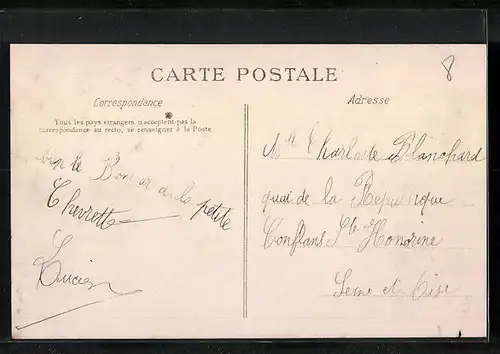 8
CARTE POSTALE
Correspondance
Tous les pays étrangers n'acceptent pas la
correspondance au recto, se renseigner à la Poste
Adresse
bon de la petite
Chevrette
Lucien
Mlle Charlotte Blanchard
quai de la République
Conflans Ste Honorine
Seine et Oise